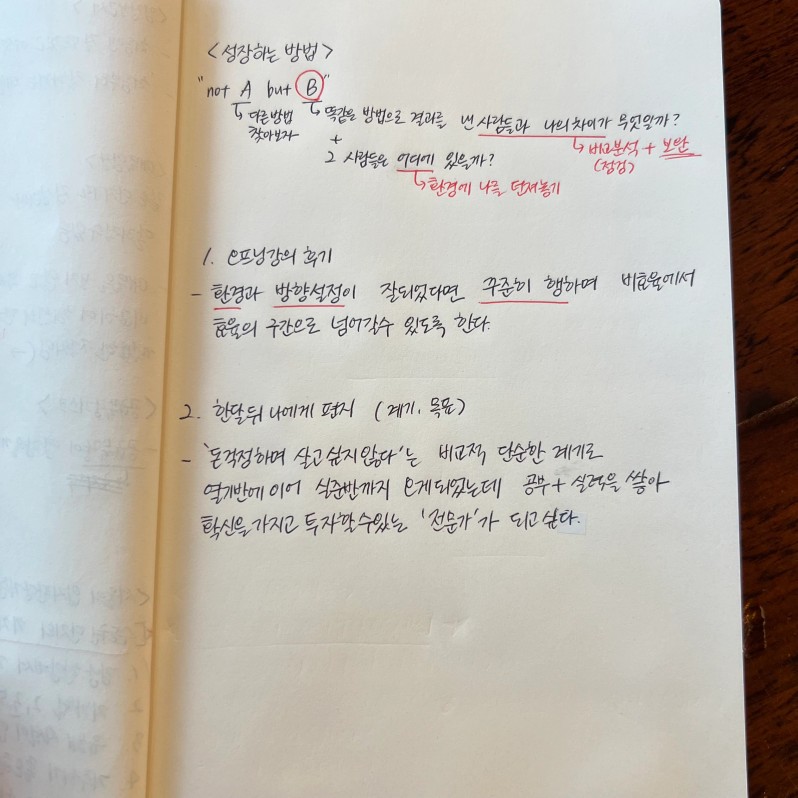 <성장하는 방법>
"not A but B"
↳ 다른방법 찾아보자
↳ 똑같은 방법으로 결과를 낸 사람들과 나의 차이가 무엇일까?
↳ 비교분석 + 보완
(점검)
+
그 사람들은 어디에 있을까?
↳ 환경에 나를 던져놓기
1. 오프닝강의 후기
- 환경과 방향설정이 잘되었다면 꾸준히 행하며 비효율에서
효율의 구간으로 넘어갈수 있도록 한다.
2. 한달뒤 나에게 편지 (계기, 목표)
- '돈걱정하며 살고싶지않다'는 비교적 단순한 계기로
열기반에 이어 실준반까지 오게되었는데 공부 + 실력을 쌓아
확신을 가지고 투자할수있는 '전문가'가 되고싶다.